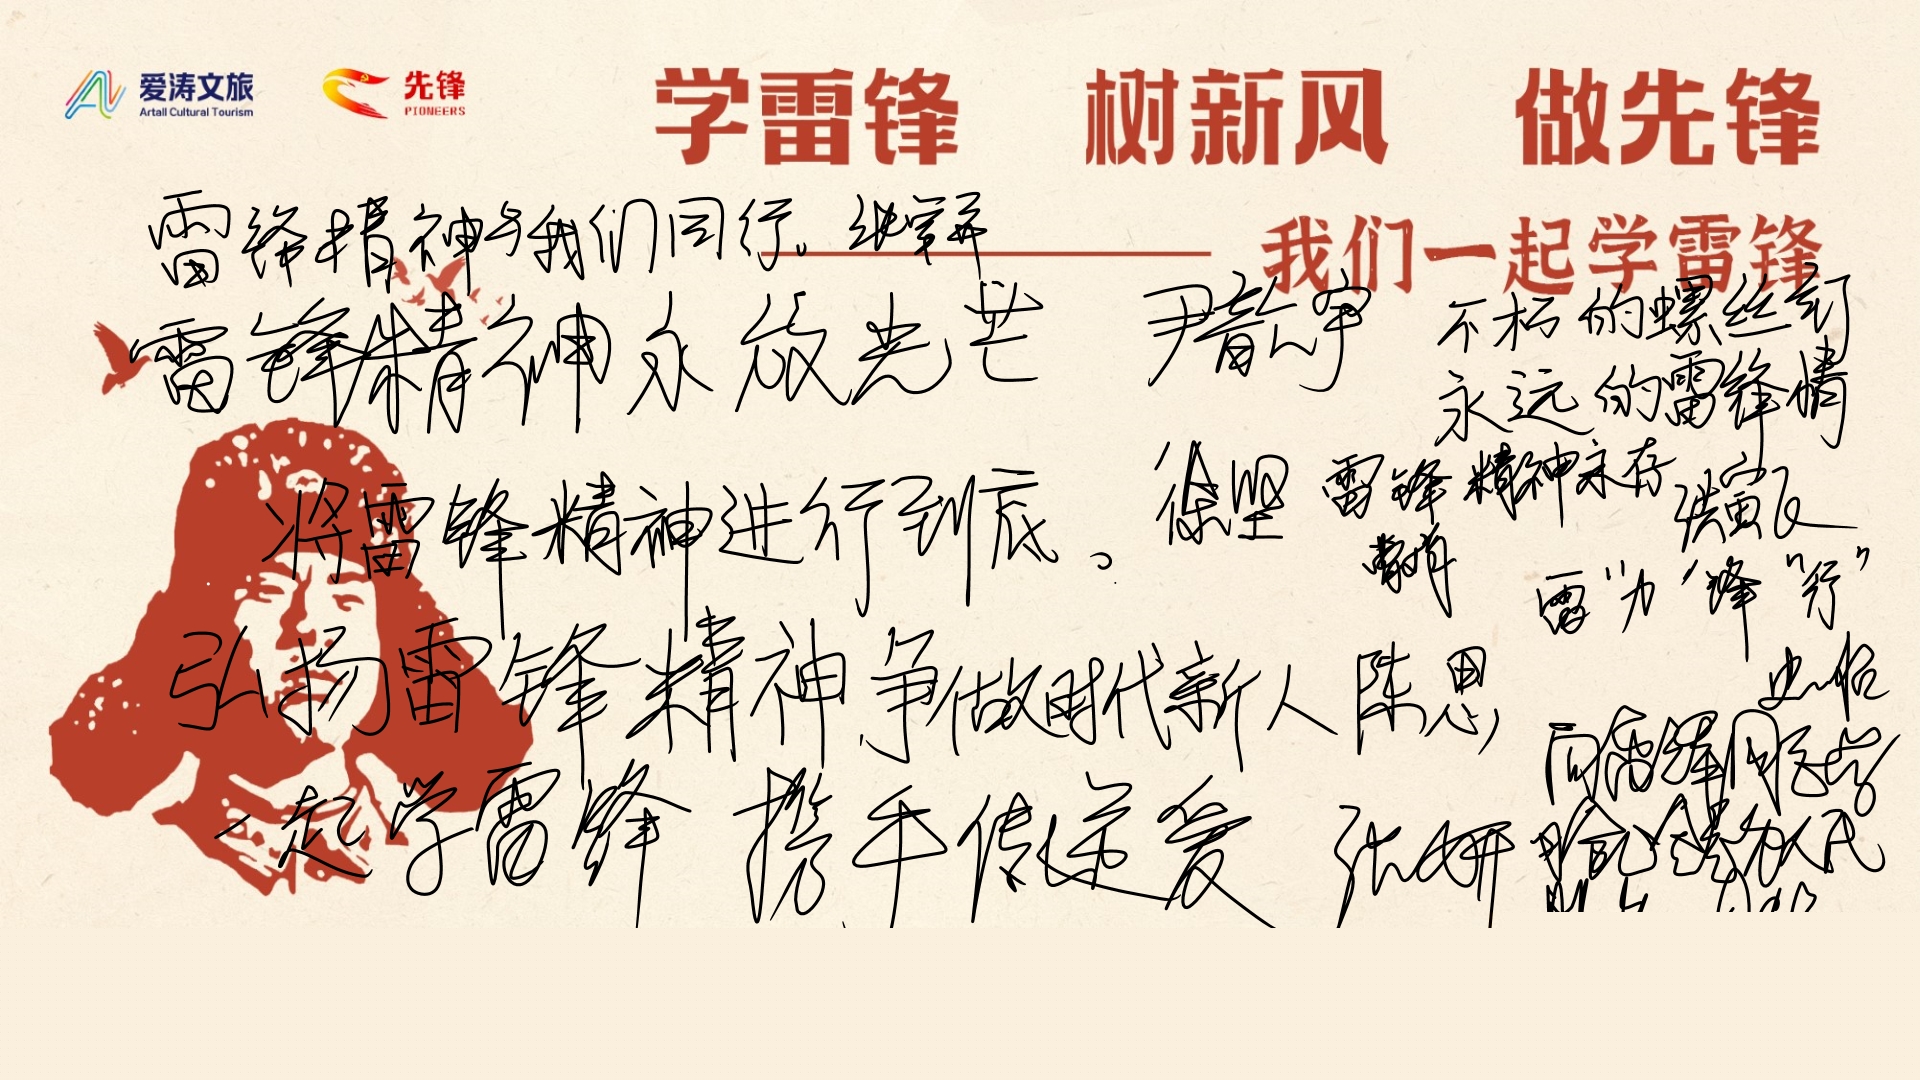 爱涛文旅
Artall Cultural Tourism
先锋
PIONEERS
学雷锋 树新风 做先锋
我们一起学雷锋
雷锋精神与我们同行。
雷锋精神永放光芒 尹韵宇
不朽的螺丝钉
永远的雷锋情
将雷锋精神进行到底。徐坚
雷锋精神永存
雷"力"锋"行"
弘扬雷锋精神争做时代新人 陈思
一起学雷锋 携手传递爱 张妍
向雷锋同志学